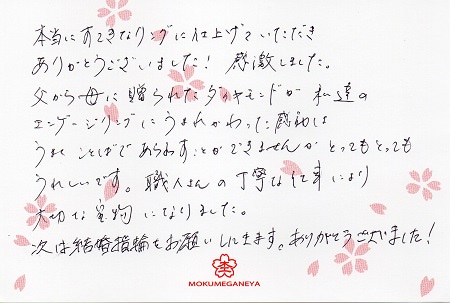 本当にすてきなリングに仕上げていただき
ありがとうございました！感激しました。
父から母に贈られたダイヤモンドが私達の
エンゲージリングにうまれかわった感動は
うまくことばであらわすことができませんがとってもとっても
うれしいです。職人さんの丁寧な仕事により
大切な宝物になりました。
次は結婚指輪をお願いしにきます。ありがとうございました！
MOKUMEGANEYA